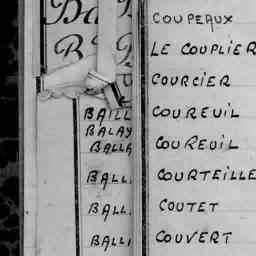 Ba
B
BAILL
BALAY
BALLA
BALL
BALL
BALLI
COUPEAUX
LE COUPLIER
COURCIER
COUREUIL
COUREUIL
COURTEILLE
COUTET
COUVERT